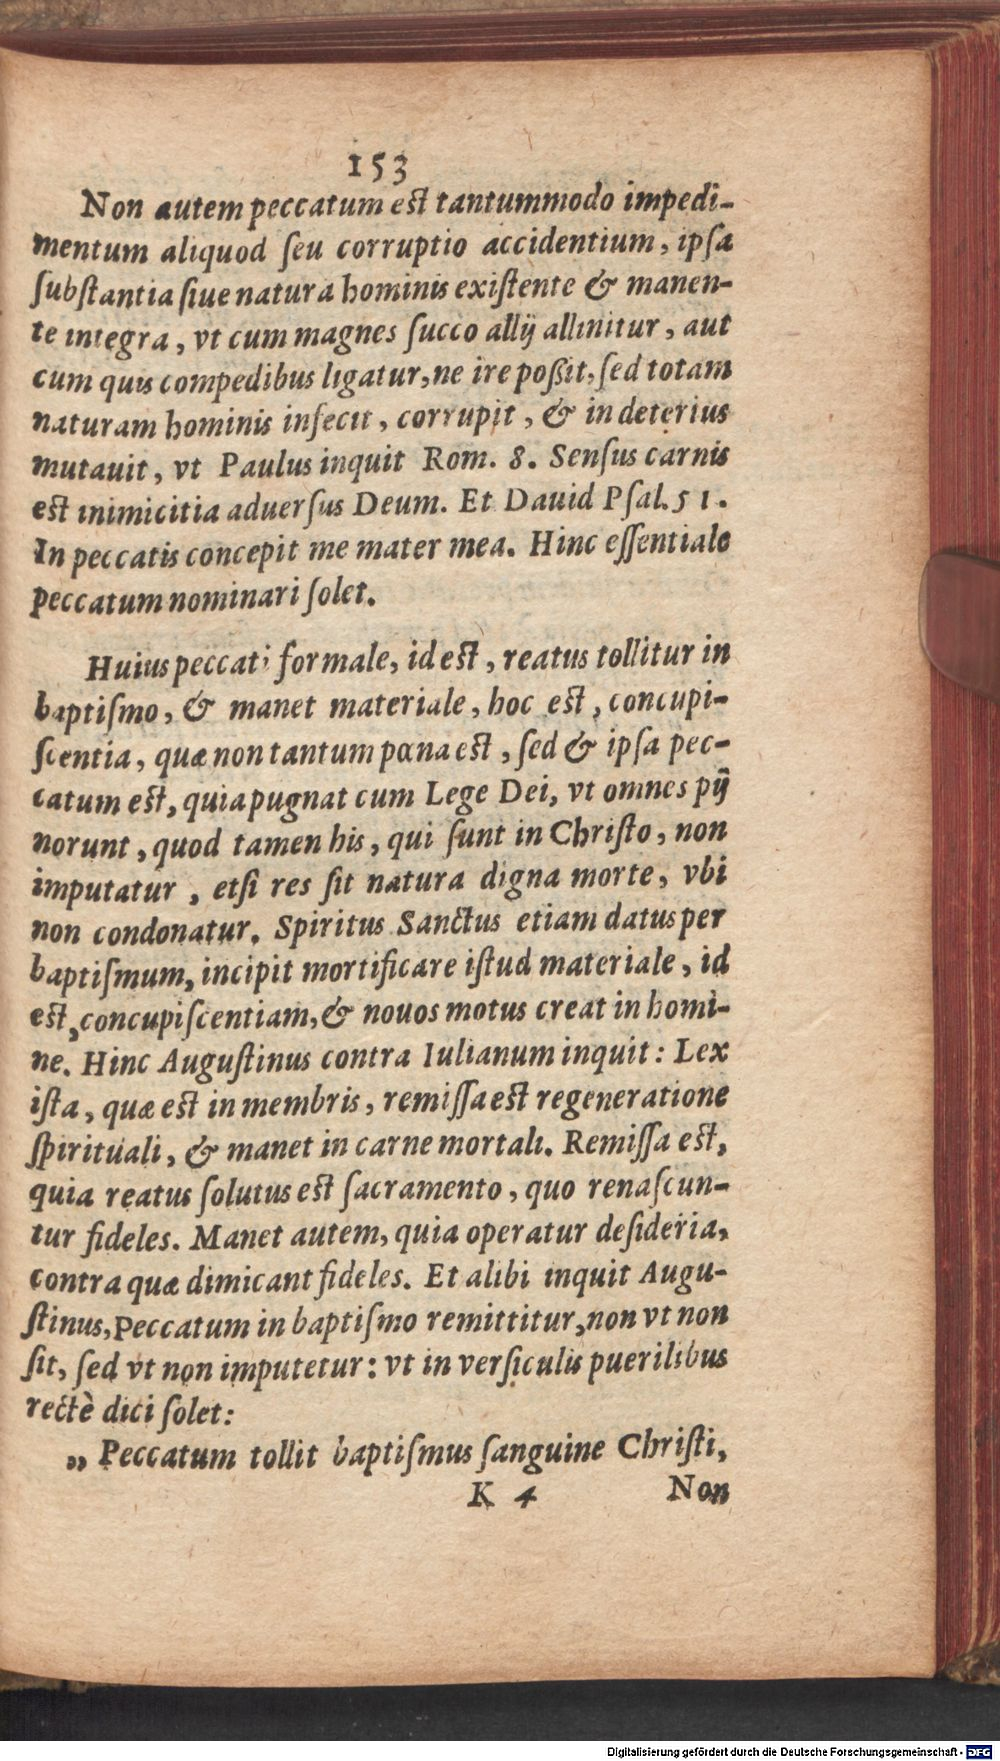 153
Non autem peccatum est tantummodo impedi-
mentum aliquod ſeu corruptio accidentium, ipſa
ſubſtantia ſiue natura hominis exiſtente & manen-
te integra, vt cum magnes ſucco allij allinitur, aut
cum quis compedibus ligatur, ne ire poßit, ſed totam
naturam hominis infecit, corrupit, & in deterius
mutauit, vt Paulus inquit Rom. 8. Senſus carnis
est inimicitia aduerſus Deum. Et Dauid Pſal. 51.
In peccatis concepit me mater mea. Hinc eſſentiale
peccatum nominari ſolet.
Huius peccati formale, id est, reatus tollitur in
baptiſmo, & manet materiale, hoc est, concupi-
ſcentia, quæ non tantum pœna est, ſed & ipſa pec-
catum est, quia pugnat cum Lege Dei, vt omnes pij
norunt, quod tamen his, qui ſunt in Chriſto, non
imputatur, etſi res ſit natura digna morte, vbi
non condonatur. Spiritus Sanctus etiam datus per
baptiſmum, incipit mortificare iſtud materiale, id
est, concupiſcentiam, & nouos motus creat in homi-
ne. Hinc Auguſtinus contra Iulianum inquit: Lex
iſta, quæ est in membris, remiſſa est regeneratione
ſpirituali, & manet in carne mortali. Remiſſa est,
quia reatus ſolutus est ſacramento, quo renaſcun-
tur fideles. Manet autem, quia operatur deſideria,
contra quæ dimicant fideles. Et alibi inquit Augu-
ſtinus, Peccatum in baptiſmo remittitur, non vt non
ſit, ſed vt non imputetur: vt in verſiculis puerilibus
rectè dici ſolet:
„ Peccatum tollit baptiſmus ſanguine Chriſti,
K 4 Non
Digitalisierung gefördert durch die Deutsche Forschungsgemeinschaft - DFG